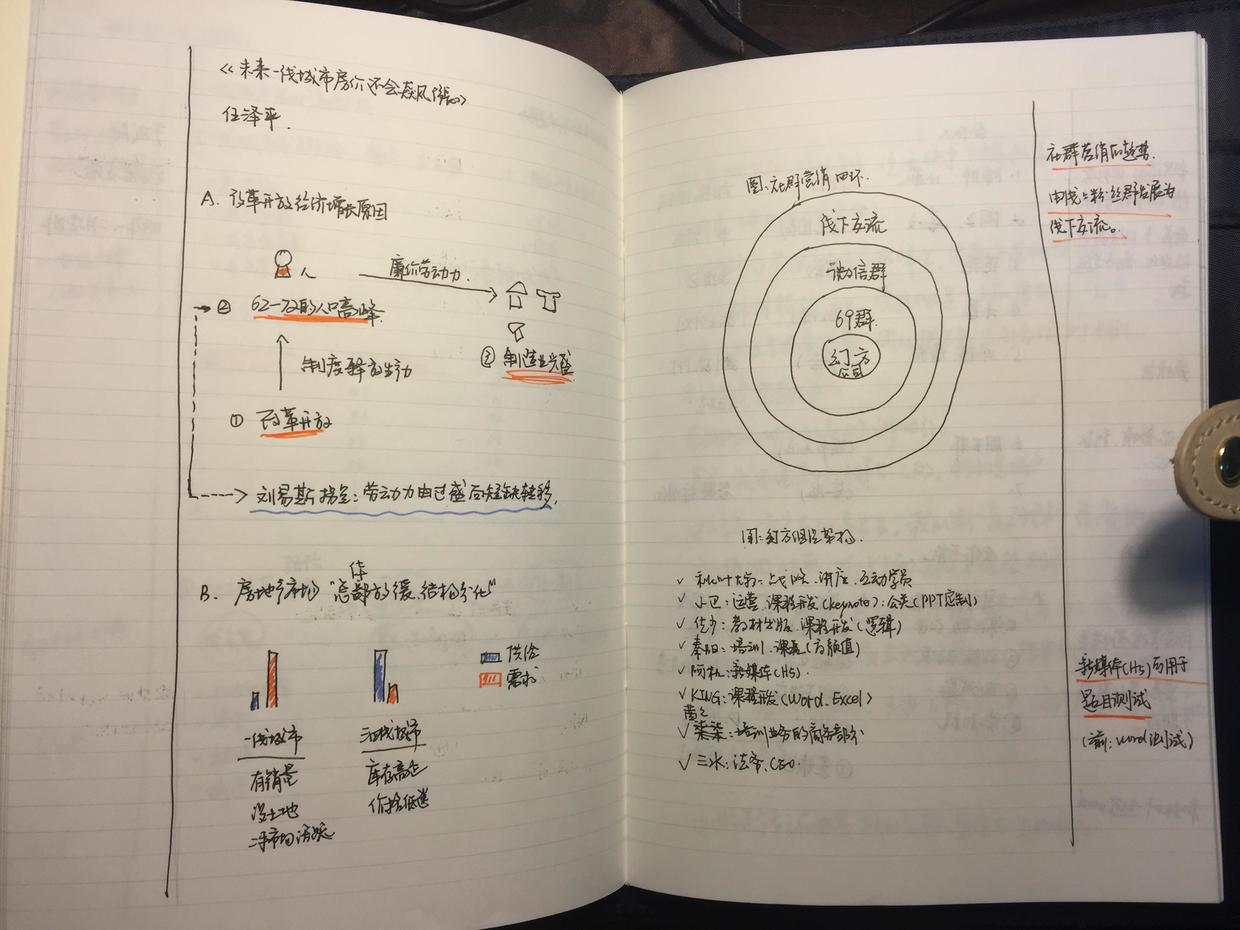 《未来一线城市房价还会飙风涨》
任泽平.
A. 改革开放经济增长原因
人
廉价劳动力.
② 62-72的人口高峰.
③ 制造业兴盛
制度解放生产力
① 改革开放
刘易斯拐点: 劳动力由过盛向短缺转移.
体
B. 房地产市场 "总部放缓.结构分化"
供给
需求
一线城市
三四线城市
有销量
库存高企
没土地
价格低迷
二手市场活跃
图:社群营销四环.
线下交流
微信群
69群.
幻方
图:幻方组织架构.
✓ 秋叶大叔: 战略.讲座.互动学员
✓ 小巴: 运营.课程开发(keynote): 公关(PPT定制)
✓ 佐少: 教材出版.课程开发(逻辑)
✓ 秦阳: 培训.课程(高颜值)
✓ 阿杭: 新媒体(H5).
✓ KING: 课程开发(Word.Excel)
✓ 柒柒: 培训业务的商务部分
✓ 三水: 法务、CEO.
社群营销的趋势.
由线上粉丝群发展为
线下交流。
新媒体(H5)可用于
题目测试
(前: word测试)